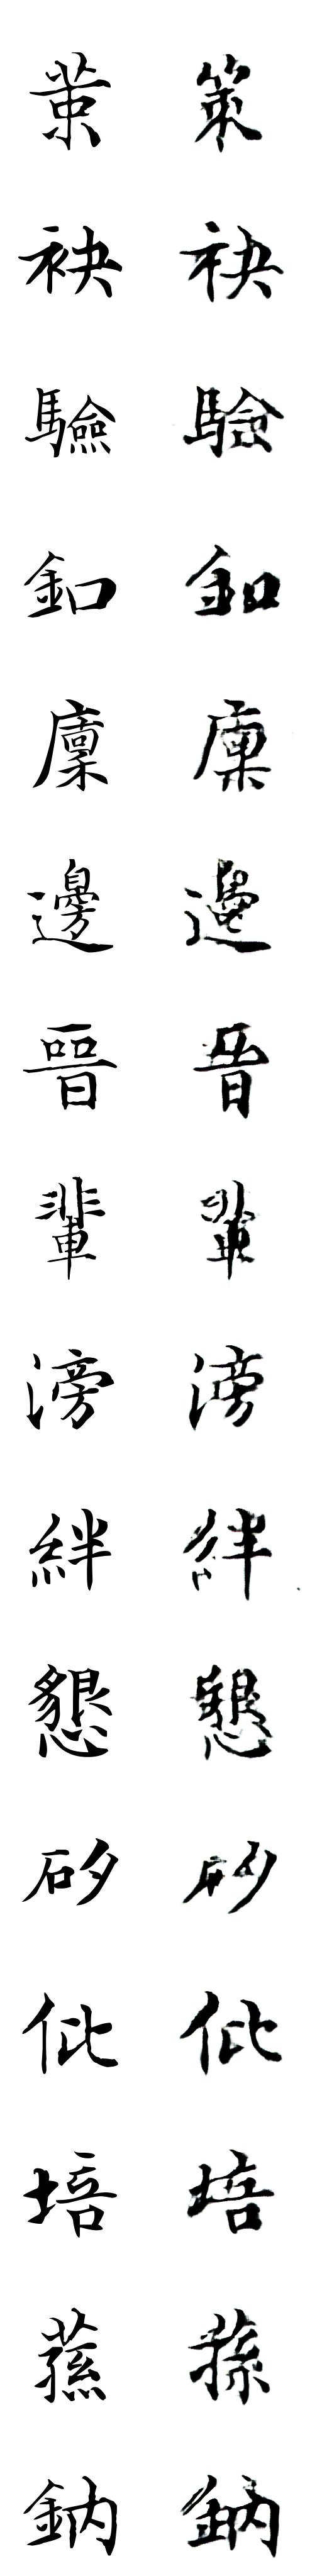 策
袂 袂
驗 驗
釦 釦
廩 廩
邊 邊
晉 晉
輩 輩
滂 滂
絆 絆
懇 懇
矽 矽
仳 仳
培 培
蓀 蓀
鈉 鈉